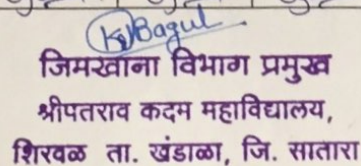 KJBagul
जिमखाना विभाग प्रमुख
श्रीपतराव कदम महाविद्यालय,
शिरवळ ता. खंडाळा, जि. सातारा